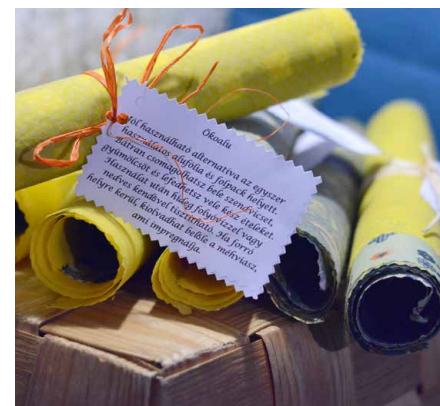 Ökoalu
Jól használható alternatíva az egyszer
használatos alufólia és folpack helyett.
Bátran csomagolhatsz bele szendvicset,
gyümölcsöt és lefedhetsz vele kész ételeket.
Használat után hideg folyóvízzel vagy
nedves kendővel tisztítható. Ha forró
helyre kerül, kiolvadhat belőle a méhviasz,
ami impregnálja.